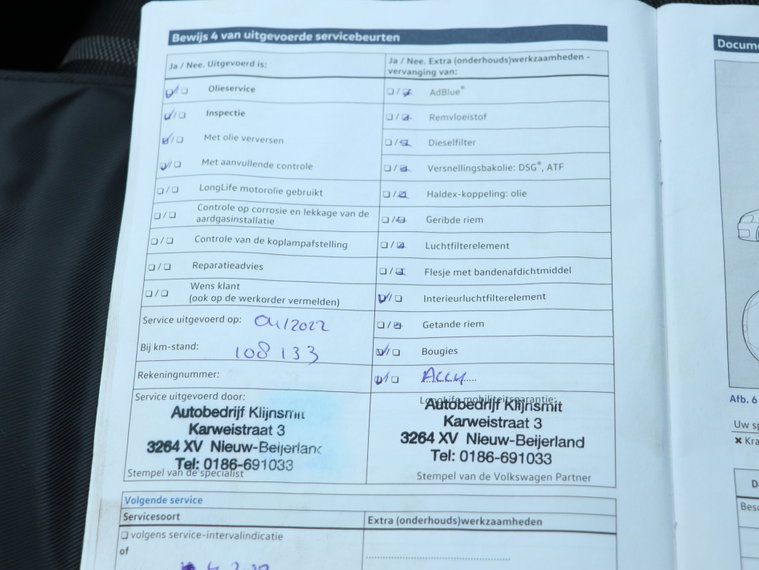 Bewijs 4 van uitgevoerde servicebeurten
Ja / Nee. Uitgevoerd is:
Olieservice
Inspectie
Met olie verversen
Met aanvullende controle
LongLife motorolie gebruikt
Controle op corrosie en lekkage van de
aardgasinstallatie
Controle van de koplampafstelling
Reparatieadvies
Wens klant
(ook op de werkorder vermelden)
Service uitgevoerd op: 04/2022
Bij km-stand: 108133
Rekeningnummer:
Service uitgevoerd door:
Autobedrijf Klijnsmit
Karweistraat 3
3264 XV Nieuw-Beijerland
Tel: 0186-691033
Stempel van de specialist
Ja / Nee. Extra (onderhouds)werkzaamheden -
vervanging van:
AdBlue®
Remvloeistof
Dieselfilter
Versnellingsbakolie: DSG®, ATF
Haldex-koppeling: olie
Geribde riem
Luchtfilterelement
Flesje met bandenafdichtmiddel
Interieurluchtfilterelement
Getande riem
Bougies
Accu.....
LongLife mobiliteitsgarantie:
Autobedrijf Klijnsmit
Karweistraat 3
3264 XV Nieuw-Beijerland
Tel: 0186-691033
Stempel van de Volkswagen Partner
Volgende service
Servicesoort
Extra (onderhouds)werkzaamheden
volgens service-intervalindicatie
of
Docume
Afb. 6
Uw sp
✖ Kra
D
Besc